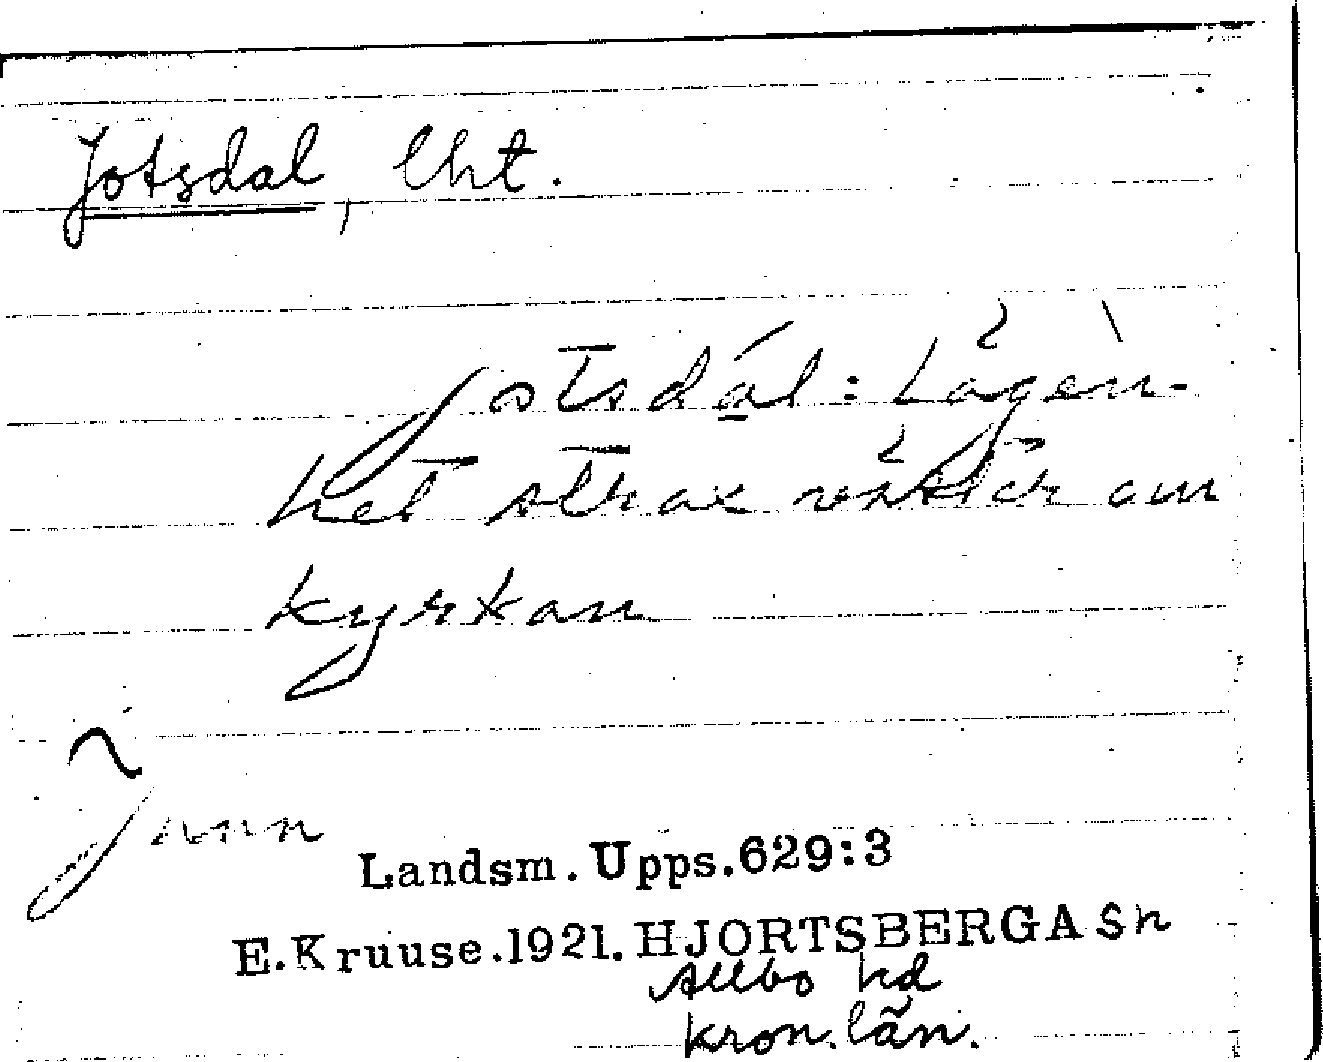 Jotsdal, lht.
jotsdál: Lägen-
het strax väster om
kyrkan
Landsm. Upps. 629:3
E. Kruuse. 1921. HJORTSBERGA Sn
Allbo hd
Kron. län.